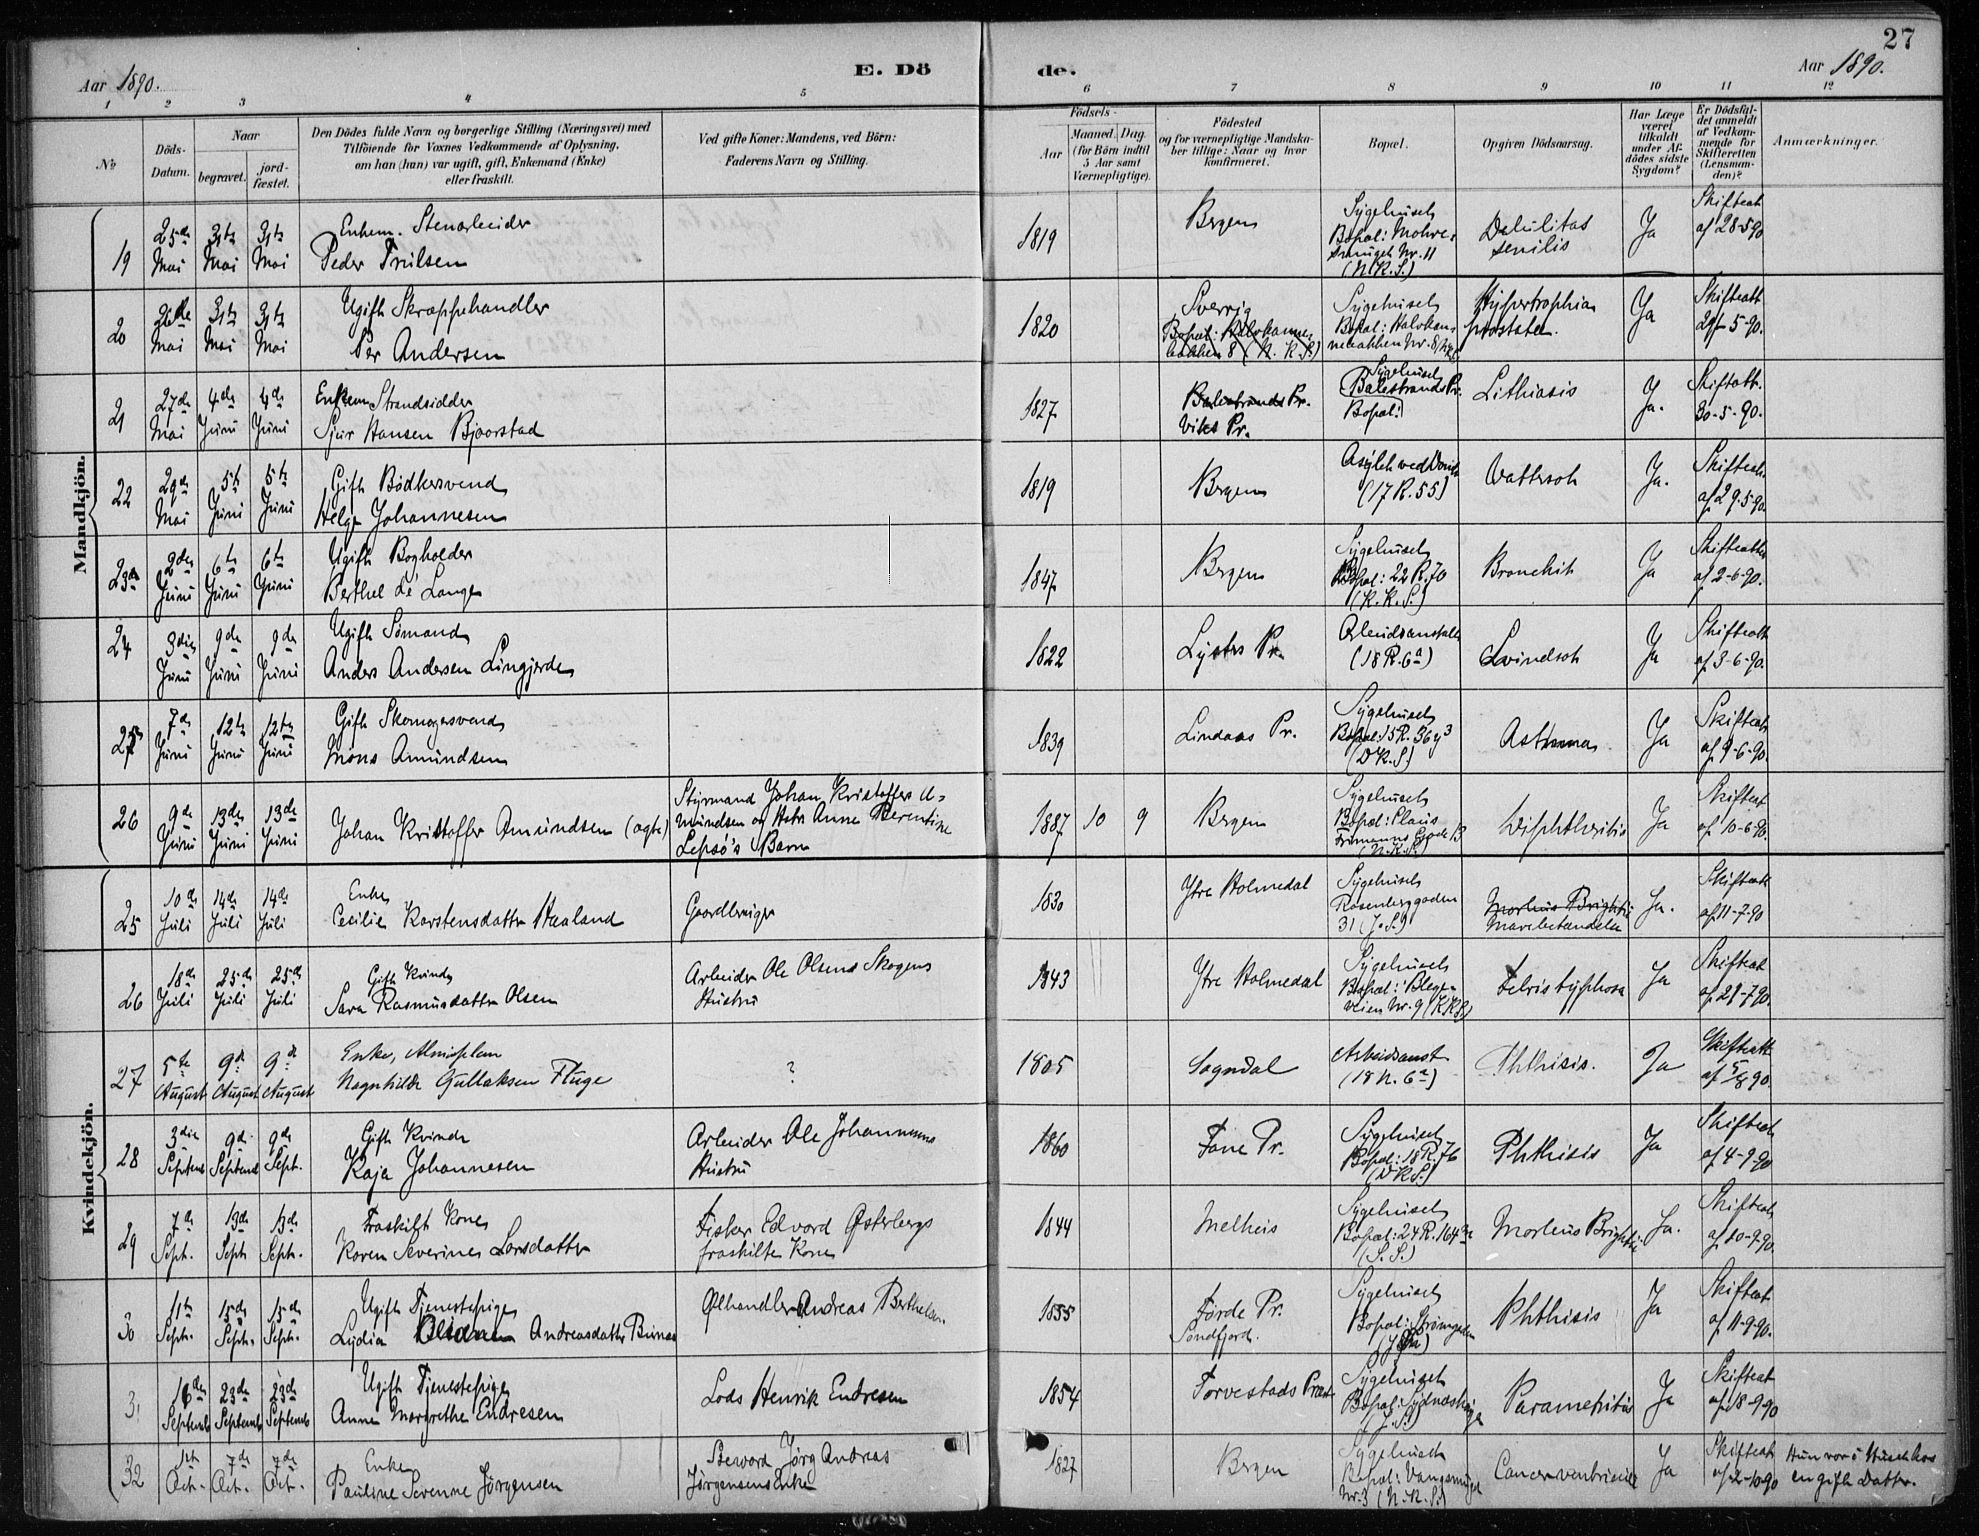 27
Aar 1890.
E. Dö
de.
Aar 1890.
1 2 3 4 5 6 7 8 9 10 11 12
No
Döds-
Datum.
Naar
begravet.
jord-
fæstet.
Den Dödes fulde Navn og borgerlige Stilling (Næringsvei) med
Tilföiende for Voxnes Vedkommende af Oplysning,
om han (hun) var ugift, gift, Enkemand (Enke)
eller fraskilt.
Ved gifte Koner: Mandens, ved Börn:
Faderens Navn og Stilling.
Födsels-
Aar
Maaned. Dag.
(for Börn indtil
5 Aar samt
Værnepligtige).
Födested
og for værnepligtige Mandska-
ber tillige: Naar og hvor
konfirmeret.
Bopæl.
Opgiven Dödsaarsag.
Har Læge
været
tilkaldt
under Af-
dödes sidste
Sygdom?
Er Dödsfal-
det anmeldt
af Vedkom-
mende for
Skifteretten
(Lensman-
den)?
Anmærkninger.
Mandkjön.
19
25de Mai
31te Mai
31te Mai
Enkem. Stenarbeider
Peder Trulsen
1819
Bergen
Sygehuset
Bopæl: Mohre-
smuget Nr. 11
(N.K.S.)
Debilitas
senilis
Ja
Skifteat
af 28-5-90
20
26de Mai
31te Mai
31te Mai
Ugift Skræppehandler
Per Andersen
1820
Sverrig
Sygehuset
Hypertrophia
prostata
Ja
Skifteatt
5-90.
21
27de Mai
4de Juni
4de Juni
Enkem Strandsidder
Sjur Hansen Bjoorstad
1827
Balestrands Pr.
Viks Pr.
Sygehuset
Balestrands Pr.
Bopæl:
Lithiasis
Ja.
Skifteatt.
30-5-90.
22
29de Mai
5te Juni
5te Juni
Gift Bødkersvend
Helge Johannesen
1819
Bergen
Asylet ved
(17 R. 55)
Vattersot
Ja.
Skifteat.
af 29.5-90.
23
2den Juni
6te Juni
6te Juni
Ugift Bogholder
Berthel de Lange
1847
Bergen
Sygehuset
Bopæl: 22 R. 70
(K.K.S.)
Bronchit
Ja
Skifteatt
af 2-6-90.
24
3die Juni
9de Juni
9de Juni
Ugift Sømand
Anders Andersen Lingjerde
1822
Lysters Pr.
Arbeidsanstalt
(18 R. 6a)
Svindsot
Ja
Skifteatt
af 3-6-90.
25
7de Juni
12te Juni
12te Juni
Gift Skomagersvend
Mons Amundsen
1839
Lindaas Pr.
Sygehuset
Bopæl: 15 R. 36 y3
(D.K.S.)
Asthma
Ja
Skifteat
af 9-6-90.
26
9de Juni
13de Juni
13de Juni
Johan Kristoffer Amundsen (ægte)
Styrmand Johan Kristoffer A=
mundsen og Hstr Anne Berentine
Lepsø's Barn
1887 10 9
Bergen
Sygehuset
Bopæl: Claus
(N.K.S.)
Diphtheritis
Ja
Skifteat
af 10-6-90.
Kvindekjön.
25
10de Juli
14de Juli
14de Juli
Enke
Cecilie Karstensdatter Haaland
Gaardbruger
1830
Ytre Holmedal
Sygehuset
Rosenberggaden
31 (J.S.)
Morbus Brightii
Ja.
Skifteatt
af 11-7-90
26
18de Juli
25de Juli
25de Juli
Gift Kvinde
Sara Rasmusdatter Olsen
Arbeider Ole Olsens Skogens
Hustru
1843
Ytre Holmedal
Sygehuset
Bopæl: Blege-
veien Nr. 9 (K.K.S.)
Febris typhosa
Ja
Skifteat
af 21-7-90.
27
5te August
9de August
9de August
Enke, Almisselem
Ragnhilde Gullaksen Fluge
?
1805
Sogndal
Arbeidsanst.
(18 R. 6a)
Phthisis.
Ja
Skifteatt
af 5/8 90.
28
3die Septemb
9de Septemb
9de Sept.
Gift Kvinde
Kaja Johannesen
Arbeider Ole Johannesens
Hustru
1860
Fane Pr.
Sygehuset
Bopæl: 18 R. 76
(D.K.S.)
Phthisis
Ja
Skifteat
af 4-9-90
29
7de Sept.
13de Sept
13de Sept.
Fraskilt Kone
Karen Severine Larsdatter
Fisker Edvard Østerbergs
fraskilte Kone
1844
Melheis
Sygehuset
Bopæl: 24 R. 164
(S.S.)
Morbus Brightii
Ja.
Skifteat
af 10-9-90.
30
11te Sept.
15de Sept.
15de Sept.
Ugift Tjenestepige
Lydia Andreasdatter
Ølhandler Andreas Berthelsen
1855
Førde Pr.
Søndfjord.
Sygehuset
Bopæl: Strømgaden
Phthisis
Ja
Skifteat
af 11-9-90.
31
16de Septemb
23de Septemb
23de Septemb
Ugift Tjenestepige
Anne Margrethe Endresen
Lods Henrik Endresen
1854
Torvestads Præst
Sygehuset
Bopæl: Sydnæshaugen
(J.S.)
Parametritis
Ja
Skifteat
af 18-9-90
32
1ste Oct.
7de Oct.
7de Oct.
Enke
Pauline Severine Jørgensen
Steward Jørg Andreas
Jørgensens Enke
1827
Bergen
Sygehuset
Bopæl: Vangsmuget
Nr. 3 (N.K.S.)
Cancer ventriculi
Ja
Skifteat
af 2-10-90
Hun var i Huset hos
en gift Datter.